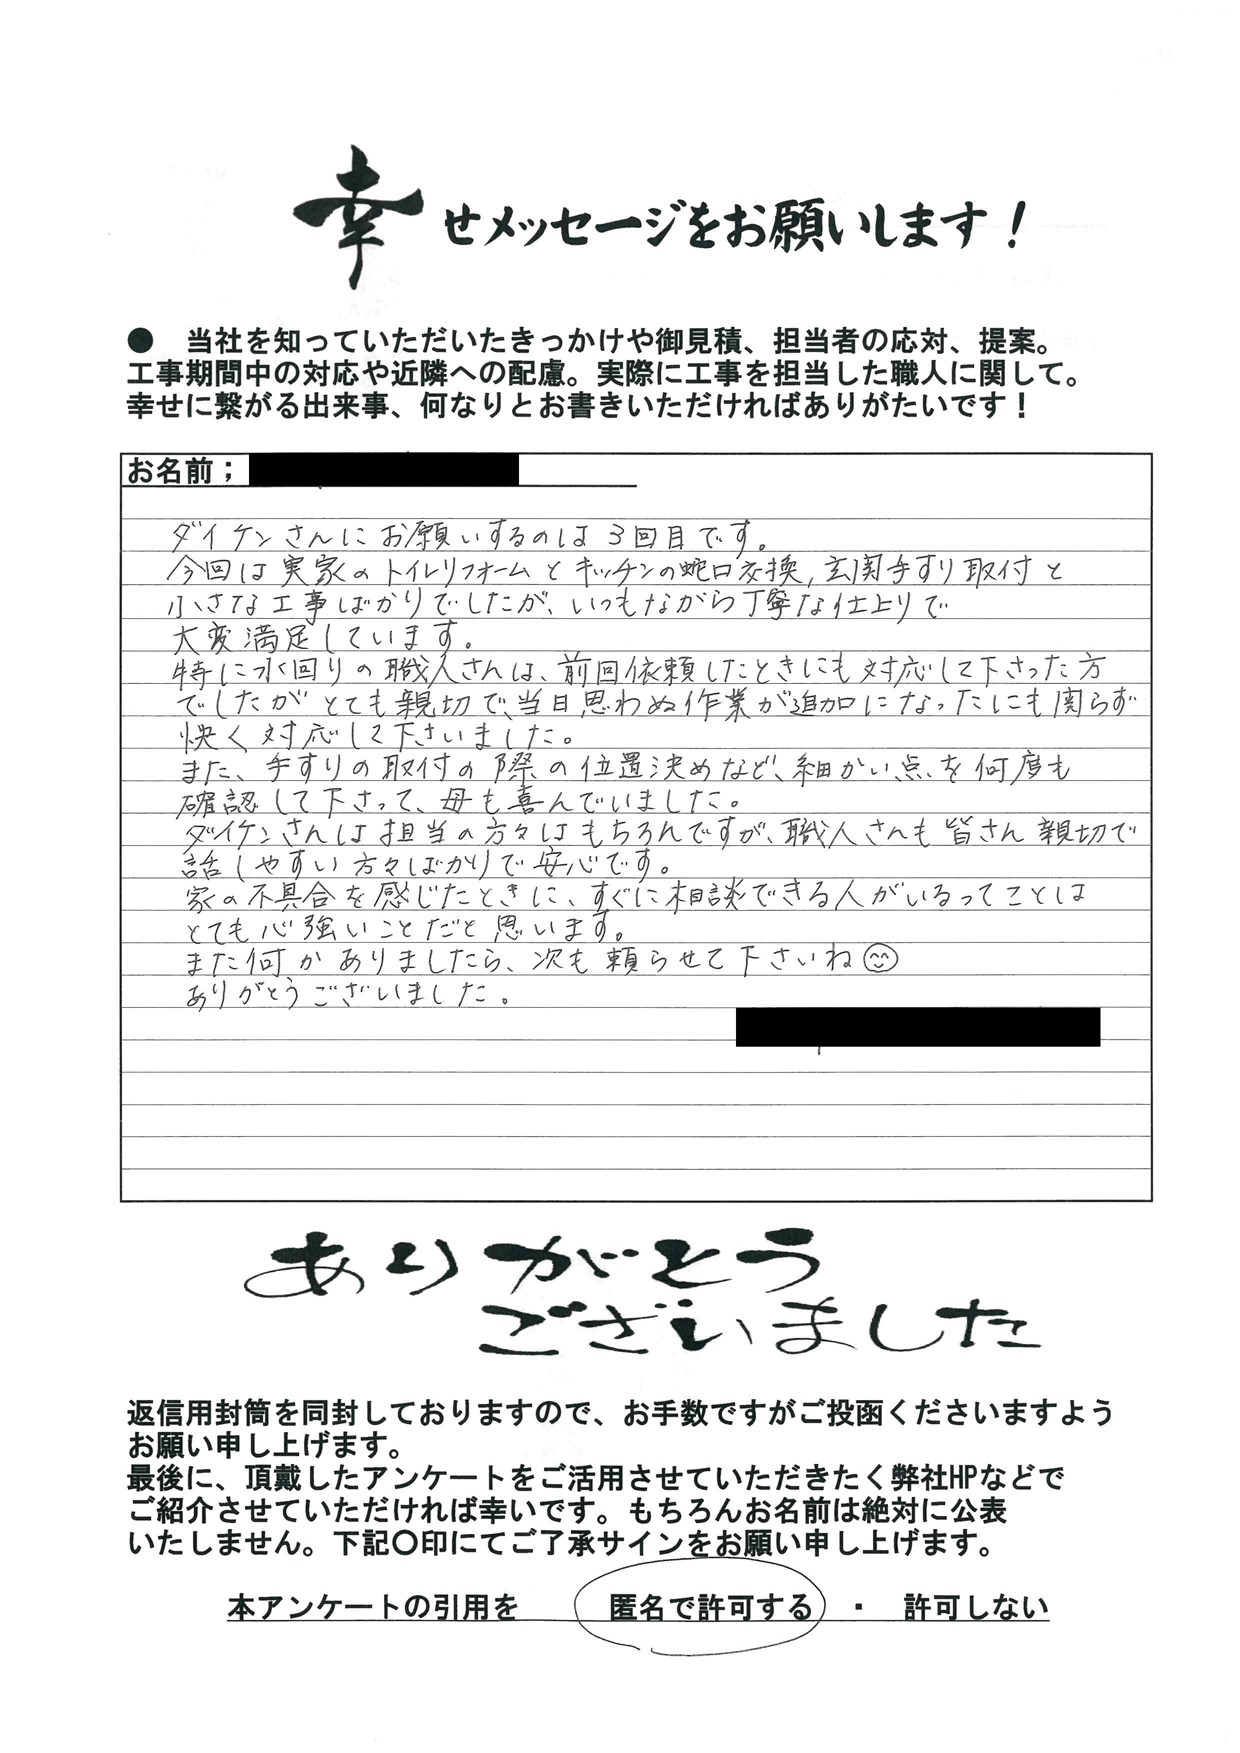 幸せメッセージをお願いします！
●　当社を知っていただいたきっかけや御見積、担当者の応対、提案。
工事期間中の対応や近隣への配慮。実際に工事を担当した職人に関して。
幸せに繋がる出来事、何なりとお書きいただければありがたいです！
お名前；
ダイケンさんにお願いするのは3回目です。
今回は実家のトイレリフォームとキッチンの蛇口交換,玄関手すり取付と
小さな工事ばかりでしたが、いつもながら丁寧な仕上りで
大変満足しています。
特に水回りの職人さんは、前回依頼したときにも対応して下さった方
でしたがとても親切で、当日思わぬ作業が追加になったにも関らず
快く対応して下さいました。
また、手すりの取付の際の位置決めなど、細かい点を何度も
確認して下さって、母も喜んでいました。
ダイケンさんは担当の方々はもちろんですが、職人さんも皆さん親切で
話しやすい方々ばかりで安心です。
家の不具合を感じたときに、すぐに相談できる人がいるってことは
とても心強いことだと思います。
また何かありましたら、次も頼らせて下さいね☺
ありがとうございました。
ありがとう
ございました
返信用封筒を同封しておりますので、お手数ですがご投函くださいますよう
お願い申し上げます。
最後に、頂戴したアンケートをご活用させていただきたく弊社HPなどで
ご紹介させていただければ幸いです。もちろんお名前は絶対に公表
いたしません。下記〇印にてご了承サインをお願い申し上げます。
本アンケートの引用を　匿名で許可する　・　許可しない